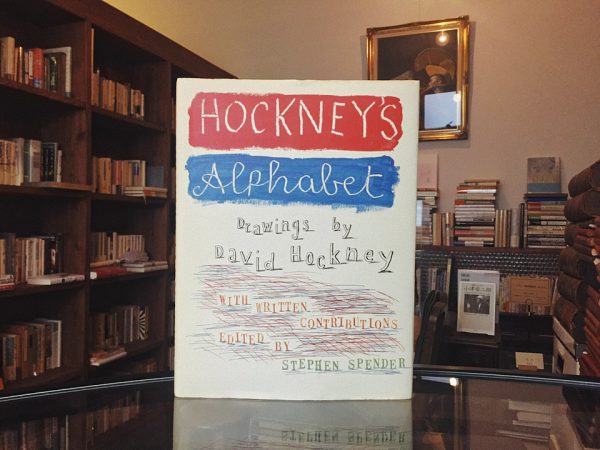 HOCKNEY'S
Alphabet
Drawings by
David Hockney
WITH WRITTEN
CONTRIBUTIONS
EDITED BY
STEPHEN SPENDER